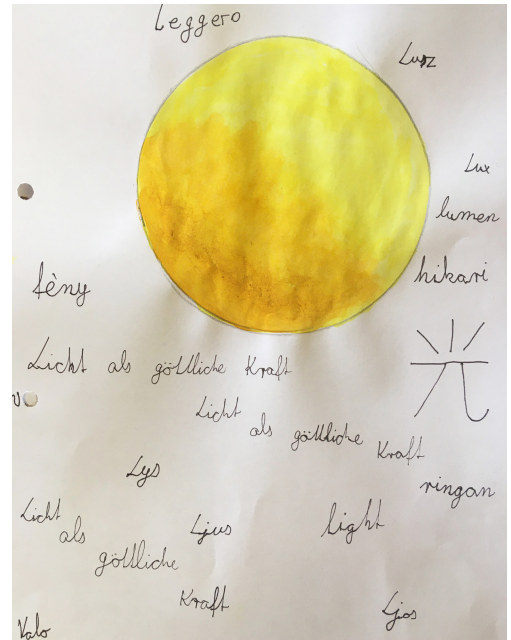 Leggero
Luz
Lux
lumen
hikari
fèny
光
Licht als göttliche Kraft
Licht
als göttliche Kraft
Lys
ringan
Licht
als
göttliche
Kraft
Ljus
light
Ljos
Valo